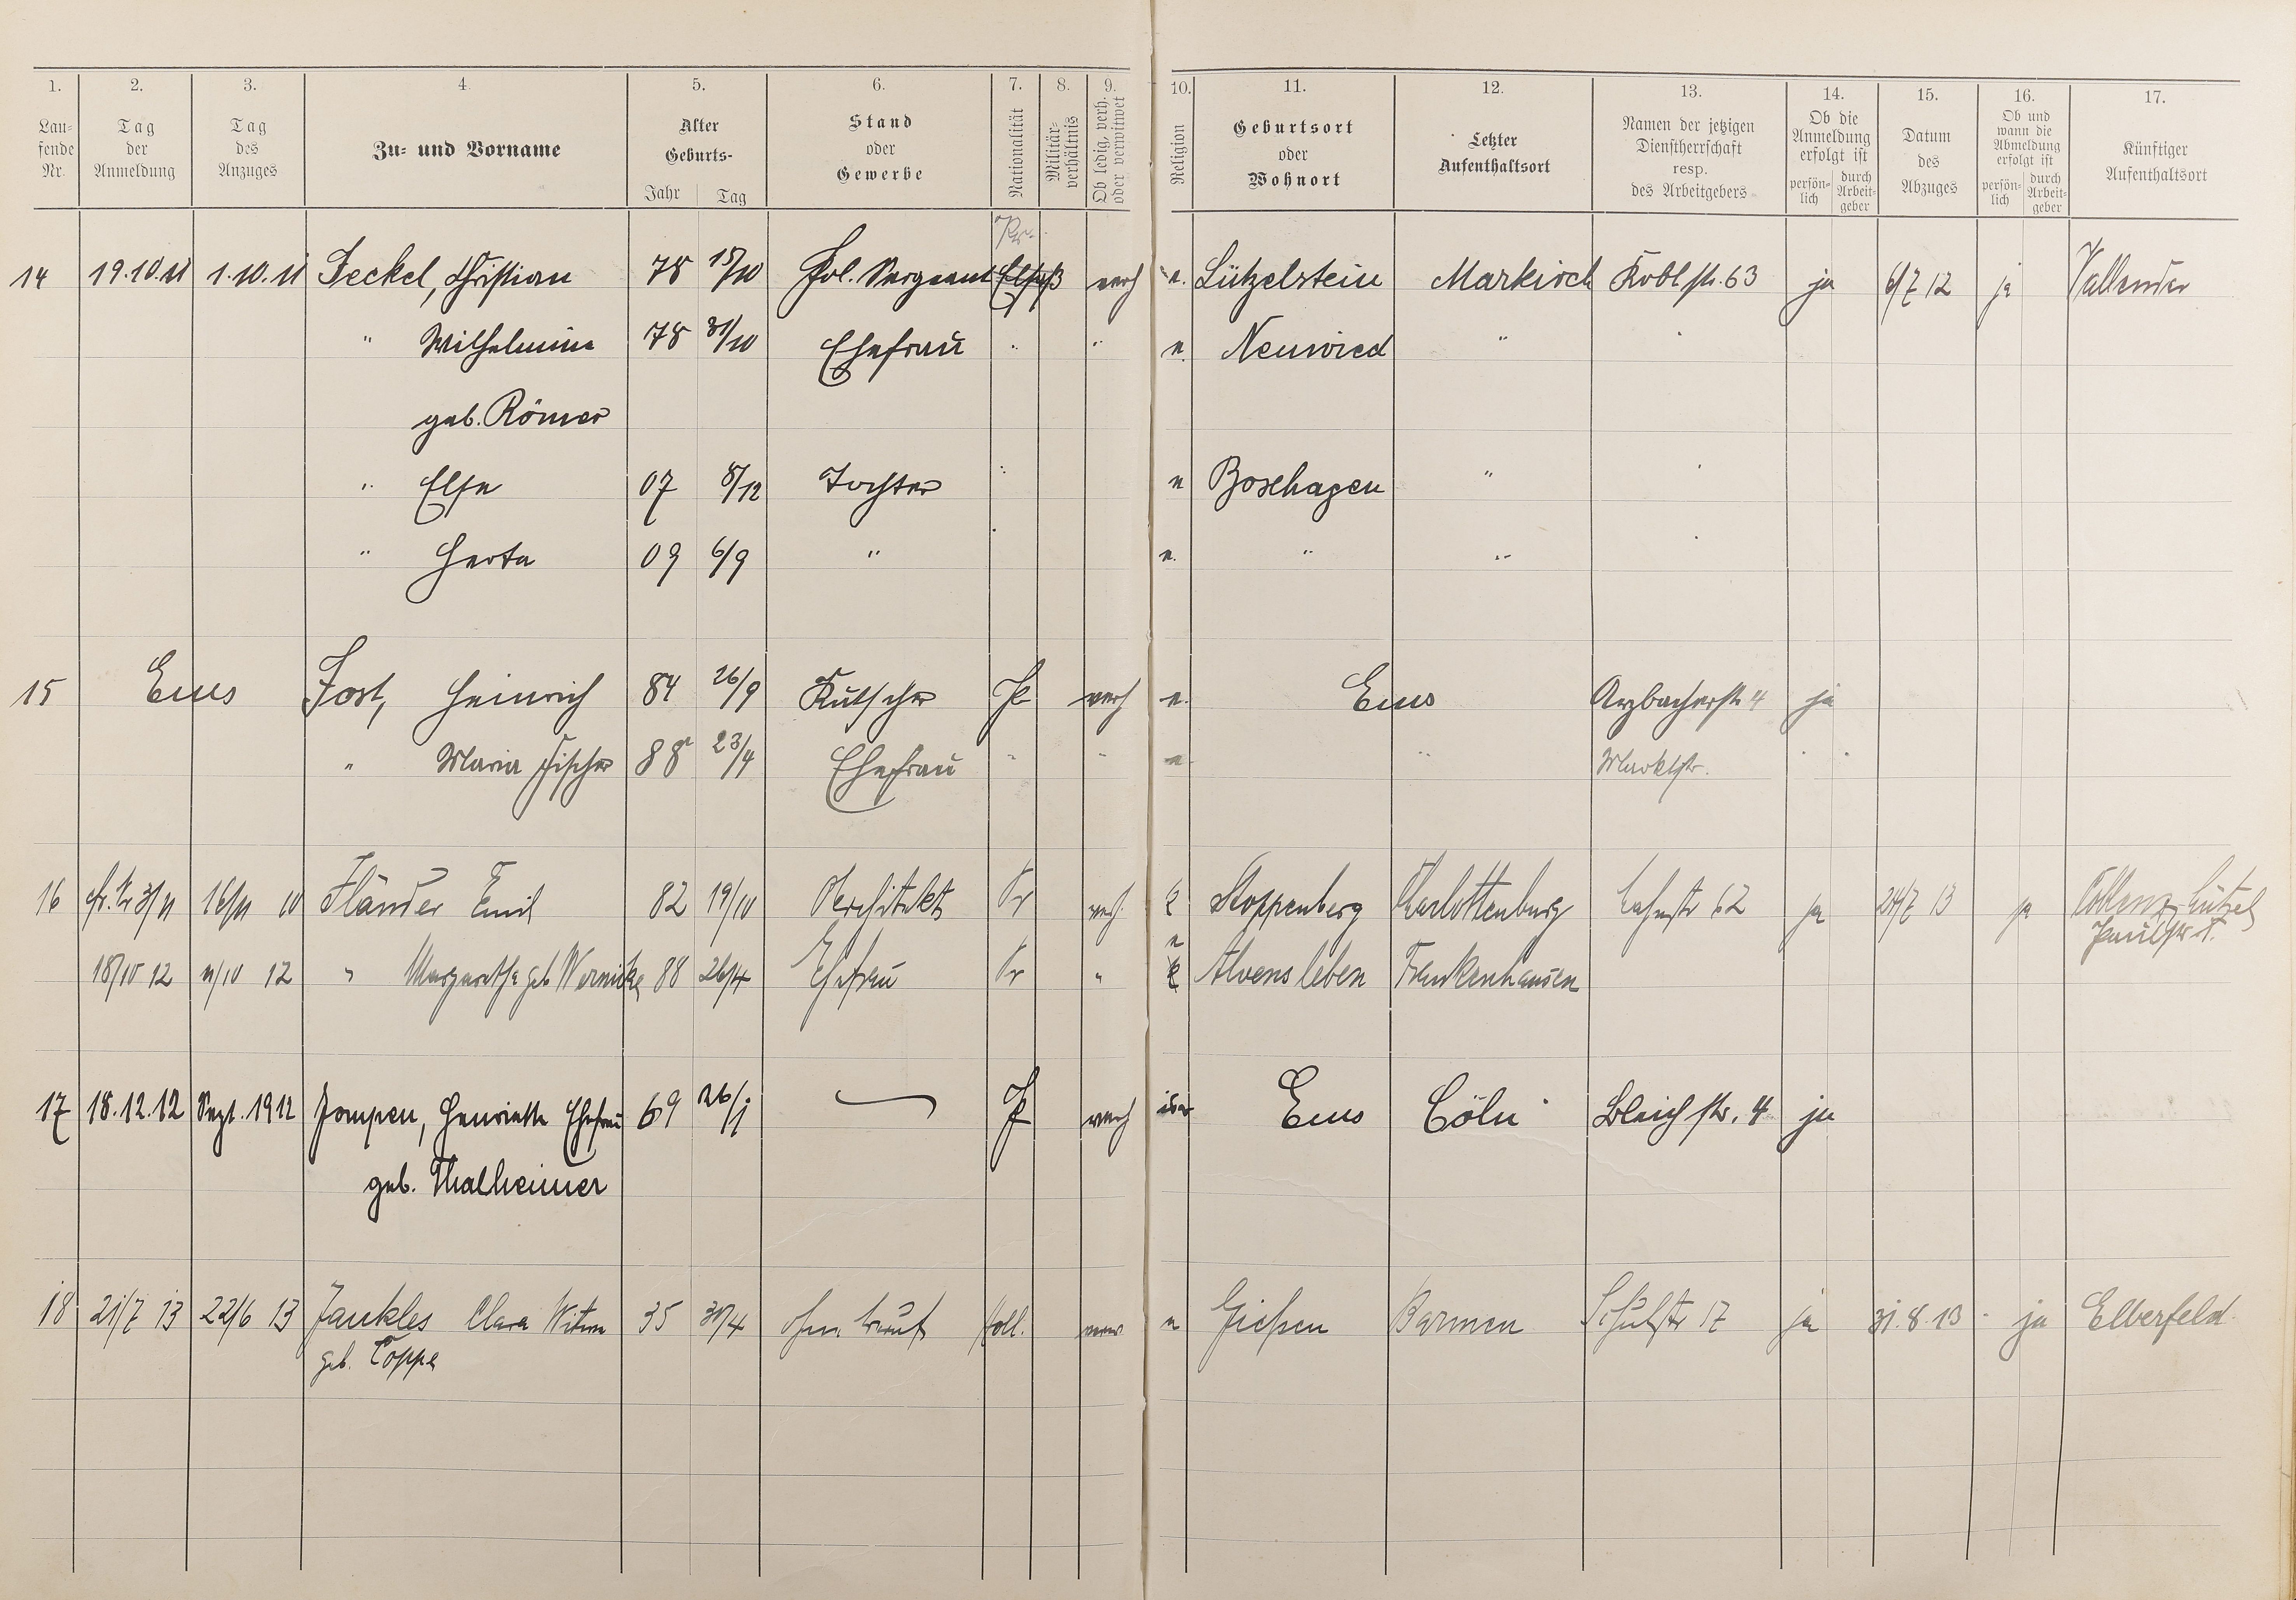 1. 2. 3. 4. 5. 6. 7. 8. 9. 10. 11. 12. 13. 14. 15. 16. 17.
Laufende Nr.
Tag der Anmeldung
Tag des Anzuges
Zu- und Vorname
Alter Geburts-
Jahr Tag
Stand oder Gewerbe
Nationalität
Militärverhältnis
Ob ledig, verh. oder verwitwet
Religion
Geburtsort oder Wohnort
Letzter Aufenthaltsort
Namen der jetzigen Dienstherrschaft resp. des Arbeitgebers
Ob die Anmeldung erfolgt ist
persönlich durch Arbeitgeber
Datum des Abzuges
Ob und wann die Abmeldung erfolgt ist
persönlich durch Arbeitgeber
Künftiger Aufenthaltsort
Pr.
14 19.10.11 1.10.11 Jeckel, Christian 78 15/10 Pol. Sergeant Elsaß verh e. Lützelstein Markirch Kobl str. 63 ja 6/7 12 ja Vallendar
" Wilhelmine 78 31/10 Ehefrau " " e. Neuwied " "
geb. Römer
" Else 07 8/12 Tochter " e Boxhagen " "
" Herta 09 6/9 " e. " " "
15 Ems Jost, Heinrich 84 26/9 Kutscher P verh e. Ems Arzbacherstr. 4 ja
" Maria Fischer 88 23/4 Ehefrau " " e " Marktstr. " "
16 3/11 16/11 10 Fländer Emil 82 19/10 Architekt Pr verh. k Stoppenberg Charlottenburg Lahnstr 62 ja 24/7 13 ja Coblenz-Lützel
Paulstr.
18/10 12 12 " Margarethe geb Wernicke 88 26/4 Ehefrau Pr " e Alvensleben Frankenhausen
17 18.12.12 Sept. 1912 Jompen, Henriette Ehefrau 69 26/1 P verh isr Ems Cöln Bleich str. 4 ja
geb. Thalheimer
18 21/7 13 22/6 13 Jankles Clara Witwe 35 30/4 ohne Beruf Holl. verw. e Gießen Barmen Schulstr 17 ja 31.8.13 - ja Elberfeld.
geb. Coppe